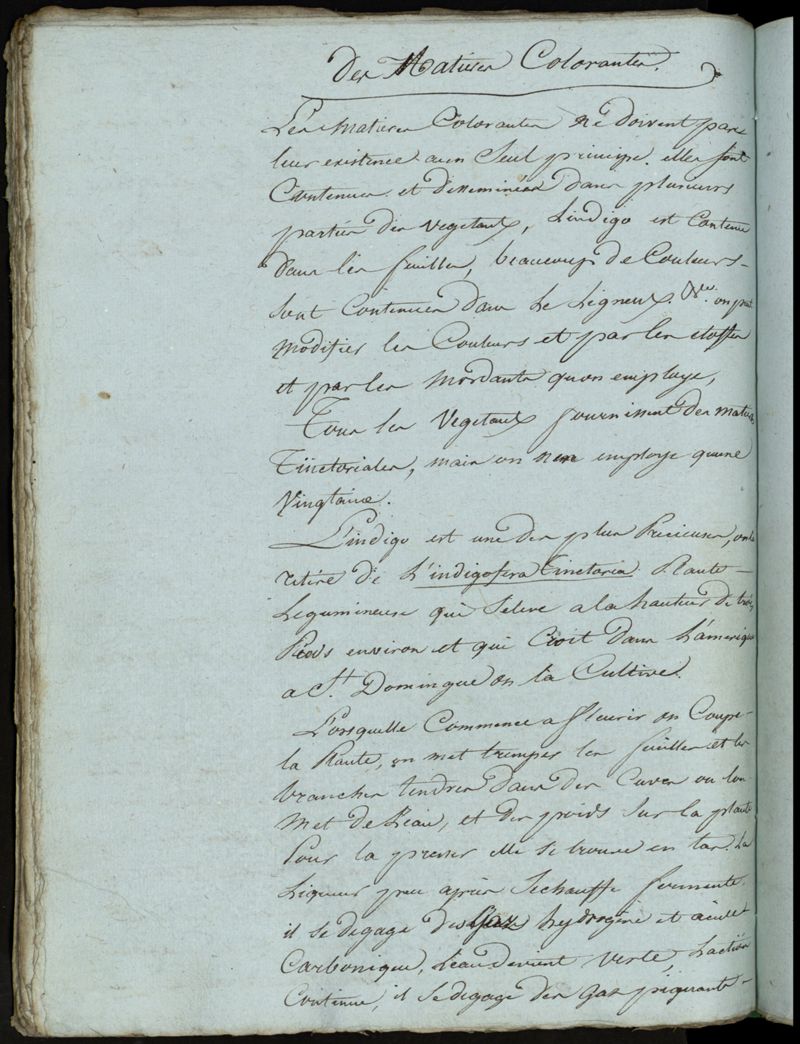 Des Matieres Colorantes.
Les matieres Colorantes ne doivent pas
leur existence aun Seul principe. elles sont
Contenues et disseminées dans plusieurs
parties des vegetaux, Lindigo est Contenu
dans les feuilles, beaucoup de Couleurs
sont Contenues dans Le Ligneux. &c. on peut
modifier les Couleurs et par les etoffes
et par les mordants quon employe,
Tous les Vegetaux fournissent des matieres
Tinctoriales, mais on nen employe quune
Vingtaine.
L'indigo est une des plus Precieuses, on la
retire de L'indigofera tinctoria Plante
Legumineuse qui Seleve a la hauteur de trois
Pieds environ et qui Croit dans L'amerique
a St. Domingue on la Cultive.
Lorsquelle Commence a fleurir on Coupe
la Plante, on met tremper les feuilles et les
branches tendres dans des Cuves ou lon
met de Leau, et des poids sur la plante
Pour la presser elle se trouve en tas. La
Liqueur peu après Sechauffe fermente.
il se degage des Gaz hydrogène et acide
Carbonique, Leau devient verte, Laction
Continue, il se degage des gaz piquants